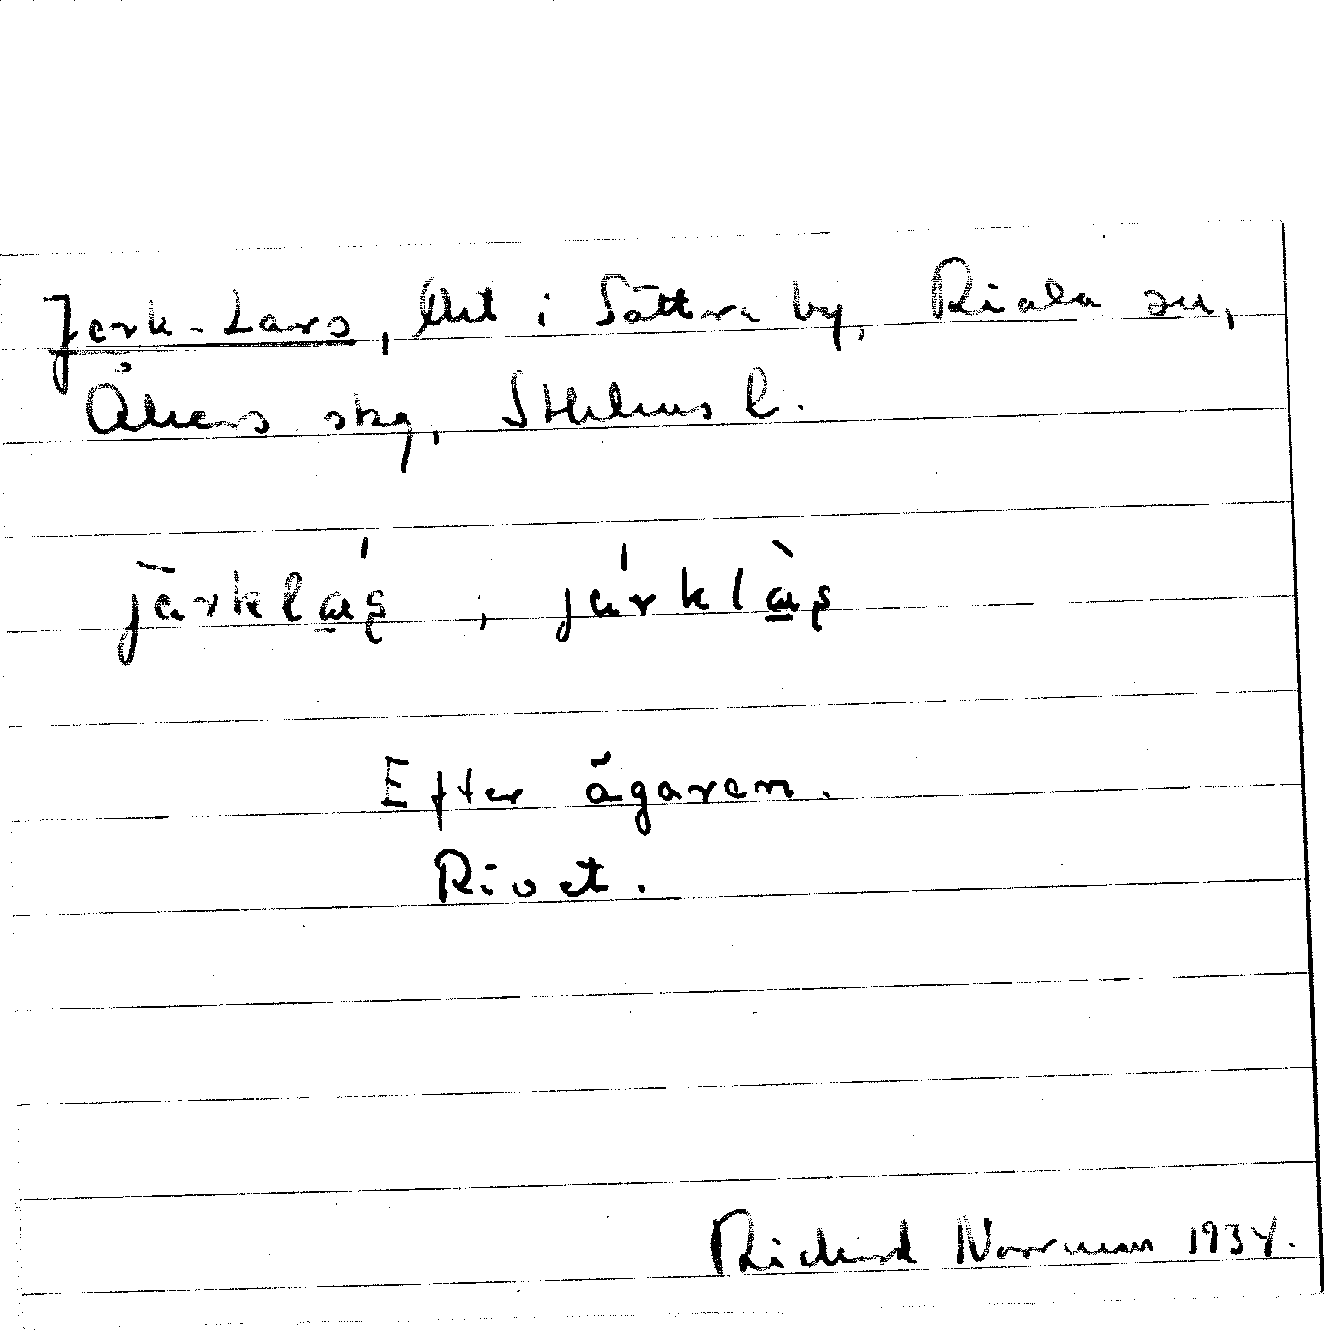 Jerk-Lars, Utt i Sättra by, Riala sn,
Åkers skg, Sthlms l.
järkla̲ş, járklàş
Efter ägaren.
Rivet.
Richard Norrman 1934.